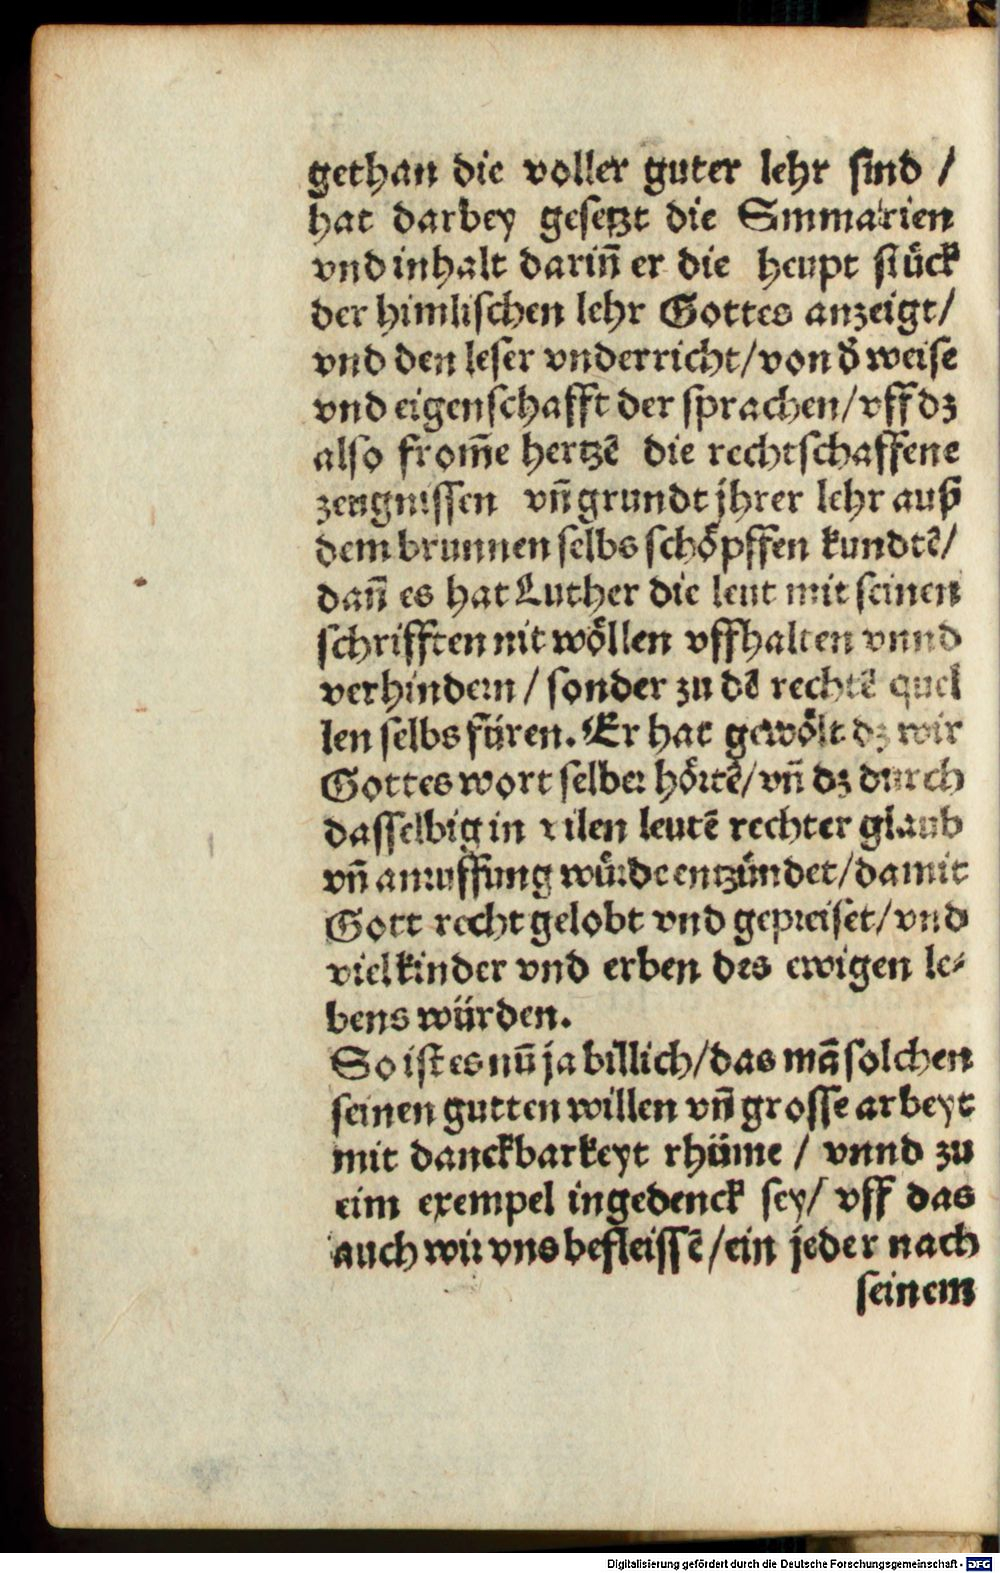 gethan die voller guter lehr sind /
hat darbey gesetzt die Smmarien
vnd inhalt dariñ er die heupt stück
der himlischen lehr Gottes anzeigt/
vnd den leser vnderricht/von d̓ weise
vnd eigenschafft der sprachen/vff dz
also from̃e hertzē die rechtschaffene
zeugnissen vñ grundt jhrer lehr auß
dem brunnen selbs schöpffen kundtē/
dañ es hat Luther die leut mit seinen
schrifften nit wöllen vffhalten vnnd
verhindern / sonder zu dē rechtē quel
len selbs füren. Er hat gewölt dz wir
Gottes wort selber hörtē/vñ dz durch
dasselbig in vilen leutē rechter glaub
vñ anruffung würde entzündet/damit
Gott recht gelobt vnd gepreiset/vnd
viel kinder vnd erben des ewigen le⸗
bens würden.
So ist es nū ja billich/das mā solchen
seinen gutten willen vñ grosse arbeyt
mit danckbarkeyt rhüme / vnnd zu
eim exempel ingedenck sey/ vff das
auch wir vns befleissē/ein jeder nach
seinem
Digitalisierung gefördert durch die Deutsche Forschungsgemeinschaft - DFG